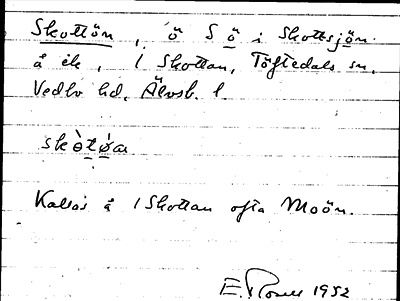 Skottön, ö S ö i Skottsjön.
å ek, 1 Skottan, Töftedals sn,
Vedbo hd, Älvsb. l.
skòtǿa
Kallas å 1 Skottan ofta Moön.
E. 1952